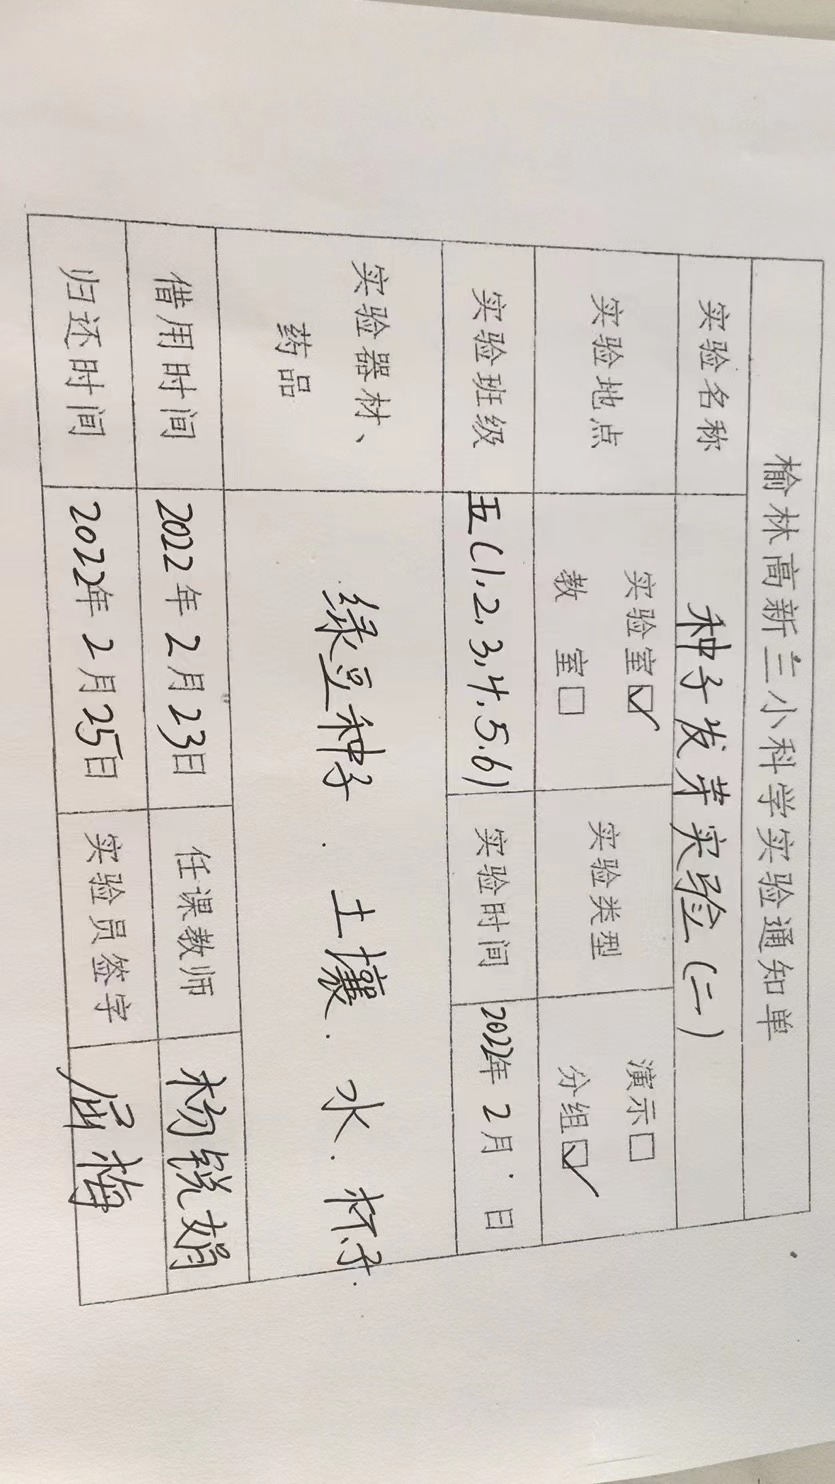 榆林高新三小科学实验通知单
实验名称 种子发芽实验(二)
实验地点 实验室☑ 教 室□ 实验类型 演示□ 分组☑
实验班级 五(1,2,3,4,5,6) 实验时间 2022年2月 日
实验器材、药品 绿豆种子、土壤、水、杯子.
借用时间 2022年2月23日 任课教师 杨锐娟
归还时间 2022年2月25日 实验员签字 屈梅